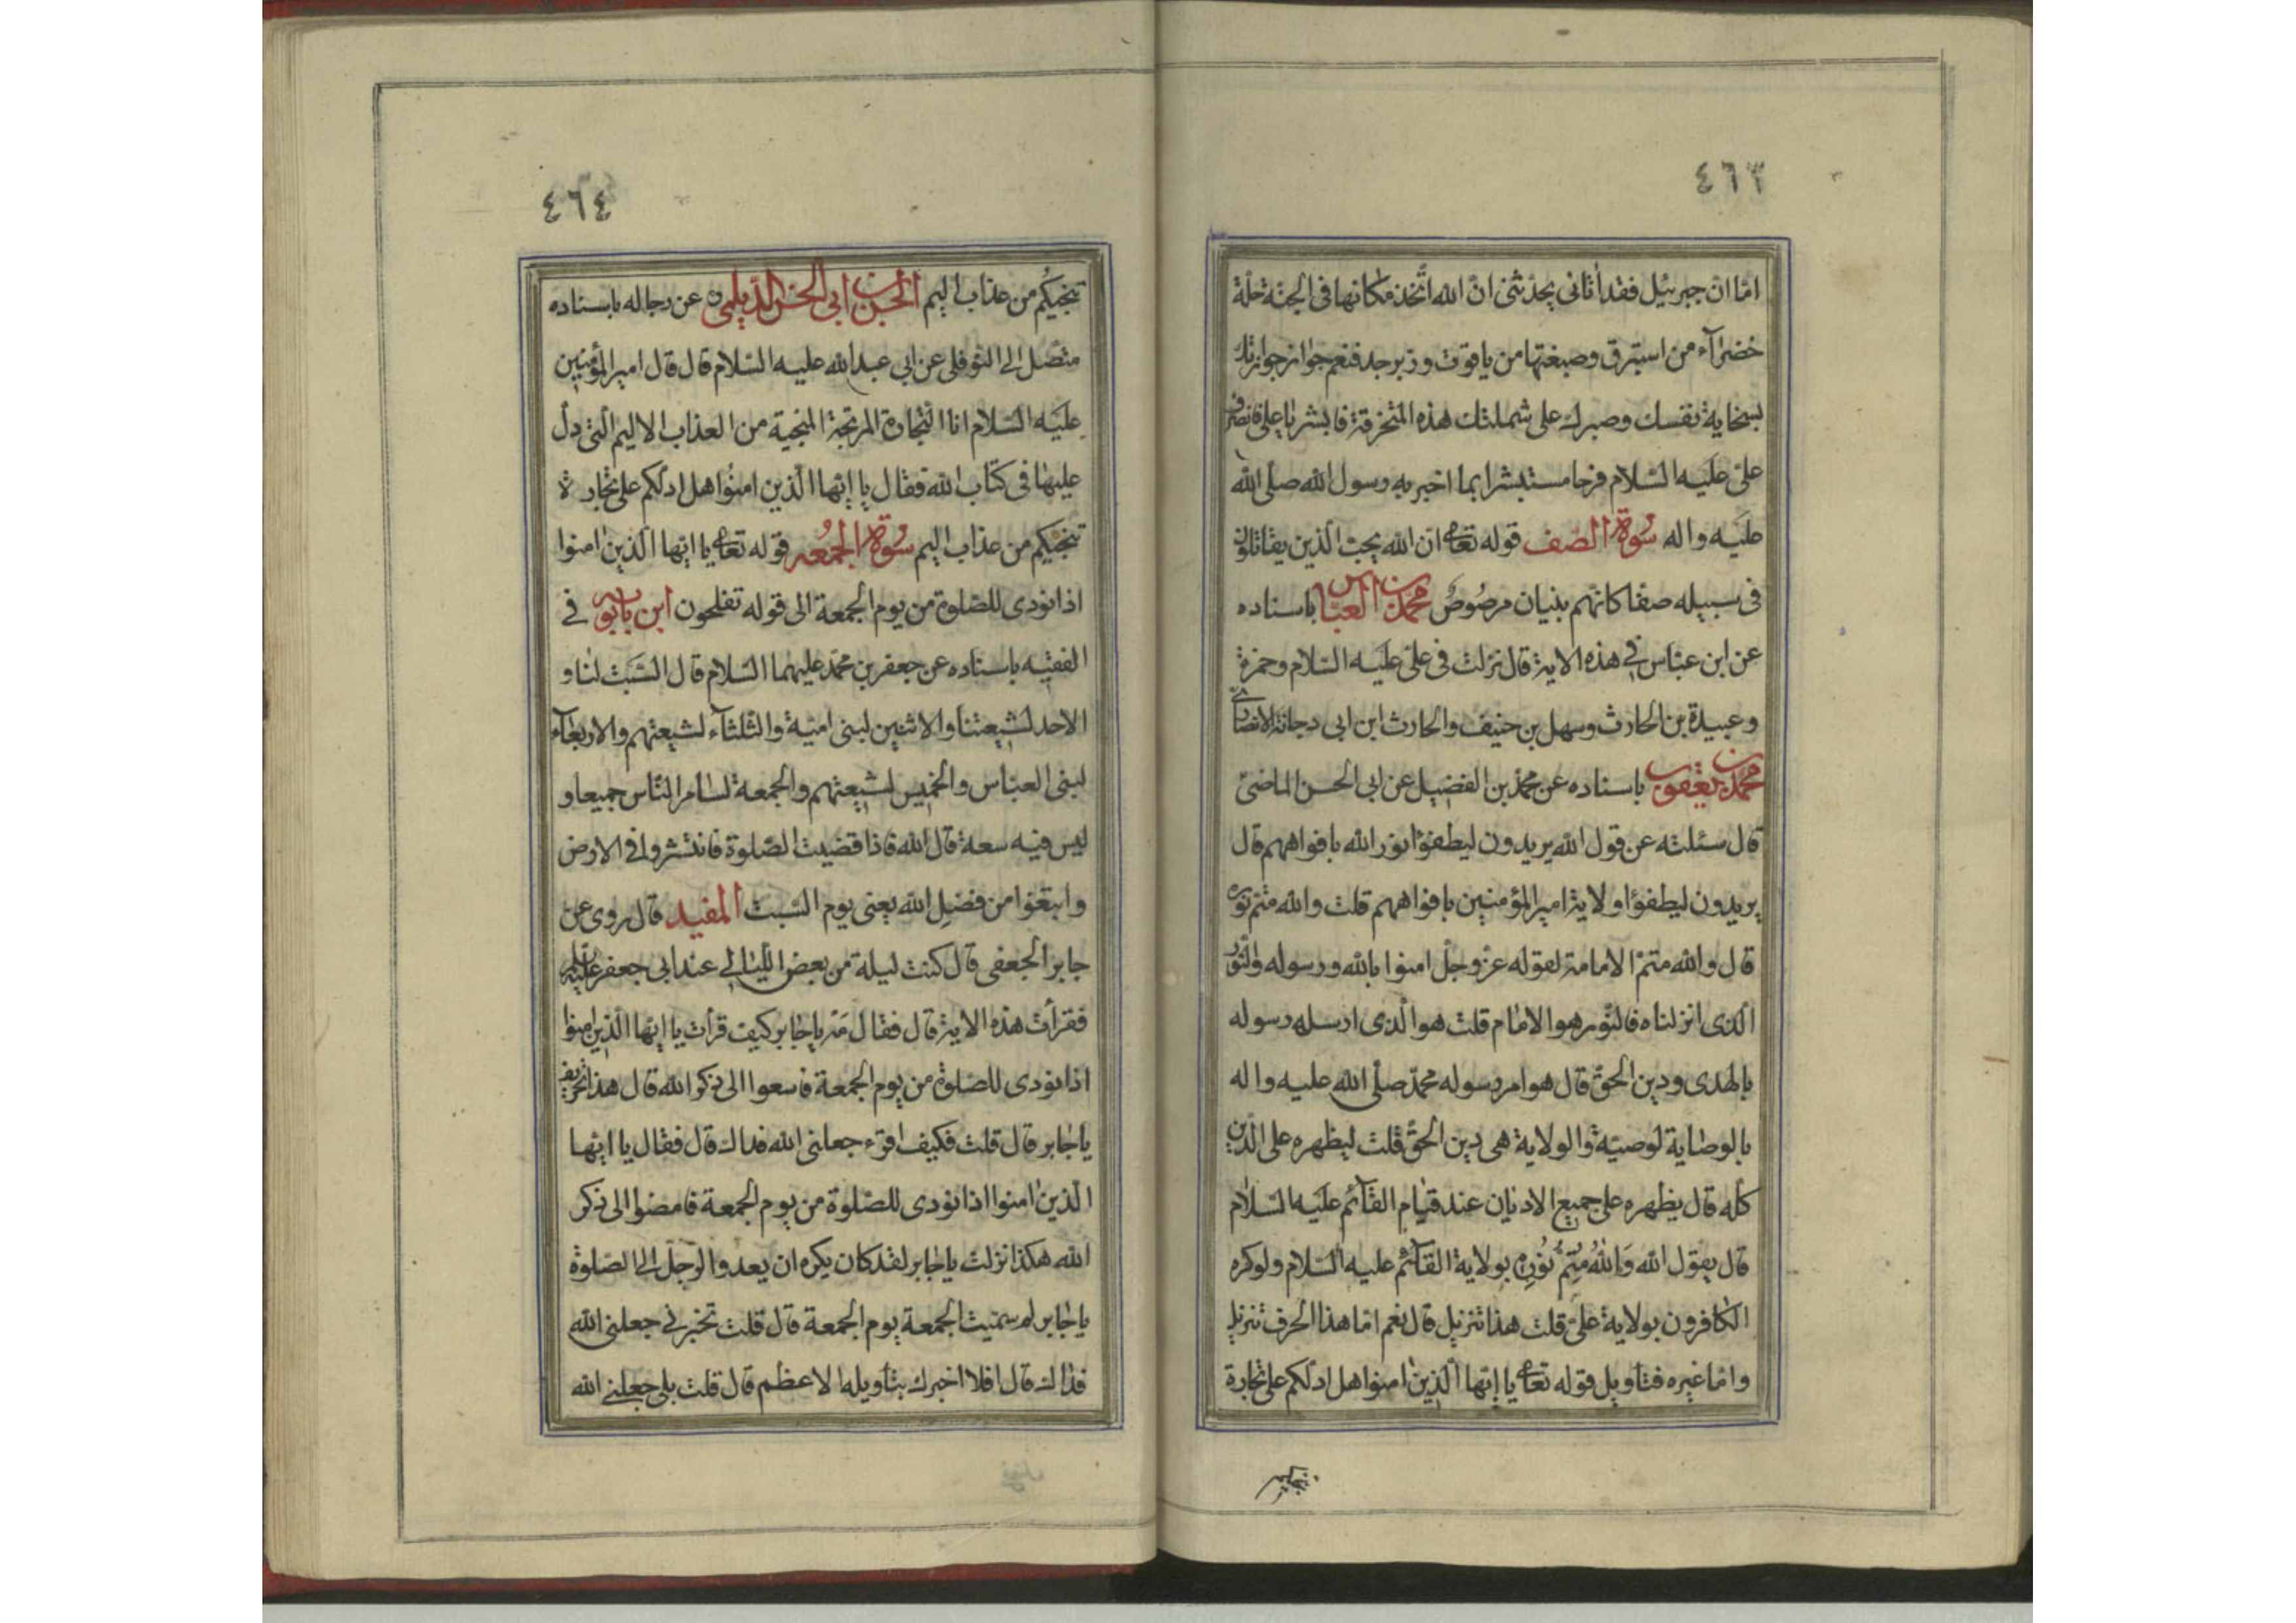 ٤٦٣
امّا انّ جبرئيل فقد اتانى يحدّثنى انّ الله اتّخذ مكانها فى الجنّة حلّة
خضرآء من استبرق وصبغتها من ياقوت وزبرجد فنعم جواز جواز ربّك
بسخاية نفسك وصبرك على شملتك هذه المتخرقة فابشر يا على فانصرف
علىّ عليه السّلام فرحا مستبشرا بما اخبر به رسول الله صلّى الله
عليه واله سورة الصّف قوله تعالى انّ الله يحبّ الّذين يقاتلون
فى سبيله صفّا كانّهم بنيان مرصوص محمّد بن العبّاس باسناده
عن ابن عبّاس فى هذه الاية قال نزلت فى علىّ عليه السّلام وحمزة
وعبيدة بن الحارث وسهل بن حنيف والحارث ابن ابى دجانة الانصارى
محمّد بن يعقوب باسناده عن محمّد بن الفضيل عن ابى الحسن الماضىّ
قال سئلته عن قول الله يريدون ليطفؤا نور الله بافواههم قال
يريدون ليطفؤا ولاية امير المؤمنين بافواههم قلت والله متم نوره
قال والله متمّ الامامة لقوله عزّ وجلّ امنوا بالله ورسوله والنّور
الّذى انزلناه فالنّور هو الامام قلت هو الّذى ارسل رسوله
بالهدى ودين الحقّ قال هو امر رسوله محمّد صلّى الله عليه واله
بالوصاية لوصيّه والولاية هى دين الحقّ قلت ليظهره على الدّين
كلّه قال يظهره على جميع الاديان عند قيام القآئم عليه السّلام
قال يقول الله وَاللهُ مُتِمُّ نُورِه بولاية القآئم عليه السّلام ولو كره
الكافرون بولاية علىّ قلت هذا تنزيل قال نعم امّا هذا الحرف تنزيل
وامّا غيره فتأويل قوله تعالى يا ايّها الّذين امنوا هل ادلّكم على تجارة
تنجيكم
٤٦٤
تنجيكُم من عذاب اليم الحسن بن ابى الحسن الدّيلمى ره عن رجاله باسناده
متّصل الى النّوفلى عن ابى عبد الله عليه السّلام قال قال امير المؤمنين
عليه السّلام انا التّجارة المربحة المنجية من العذاب الاليم الّتى دلّ
عليها فى كتاب الله فقال يا ايّها الّذين امنُوا هل ادلّكم على تجارة
تنجيكم من عذاب اليم سورة الجُمعه قوله تعالى يا ايّها الّذين امنوا
اذا نودى للصّلوة من يوم الجمعة الى قوله تفلحون ابن بابويه فى
الفقيه باسناده عن جعفر بن محمّد عليهما السّلام قال السّبت لنا و
الاحد لشيعتنا والاثنين لبنى اميّة والثّلثآء لشيعتهم والاربعآء
لبنى العبّاس والخميس لشيعتهم والجمعة لسائر النّاس جميعا و
ليس فيه سعة قال الله فاذا قضيت الصّلوة فانتشروا فى الارض
وابتغوا من فضل الله يعنى يوم السّبت المفيد قال روى عن
جابر الجعفى قال كنت ليلة من بعض اللّيالى عند ابى جعفر عليه السلم
فقرأت هذه الاية قال فقال مَهْ يا جابر كيف قرأت يا ايّها الّذين امنوا
اذا نودى للصّلوة من يوم الجمعة فاسعوا الى ذكر الله قال هذا تحريف
يا جابر قال قلت فكيف اقرء جعلنى الله فداك قال فقال يا ايّها
الّذين امنوا اذا نودى للصّلوة من يوم الجمعة فامضوا الى ذكر
الله هكذا نزلت يا جابر لقد كان يكره ان يعدوا الرّجل الى الصّلوة
يا جابر لم سمّيت الجمعة يوم الجمعة قال قلت تخبرنى جعلنى الله
فداك قال افلا اخبرك بتأويله الاعظم قال قلت بلى جعلنى الله